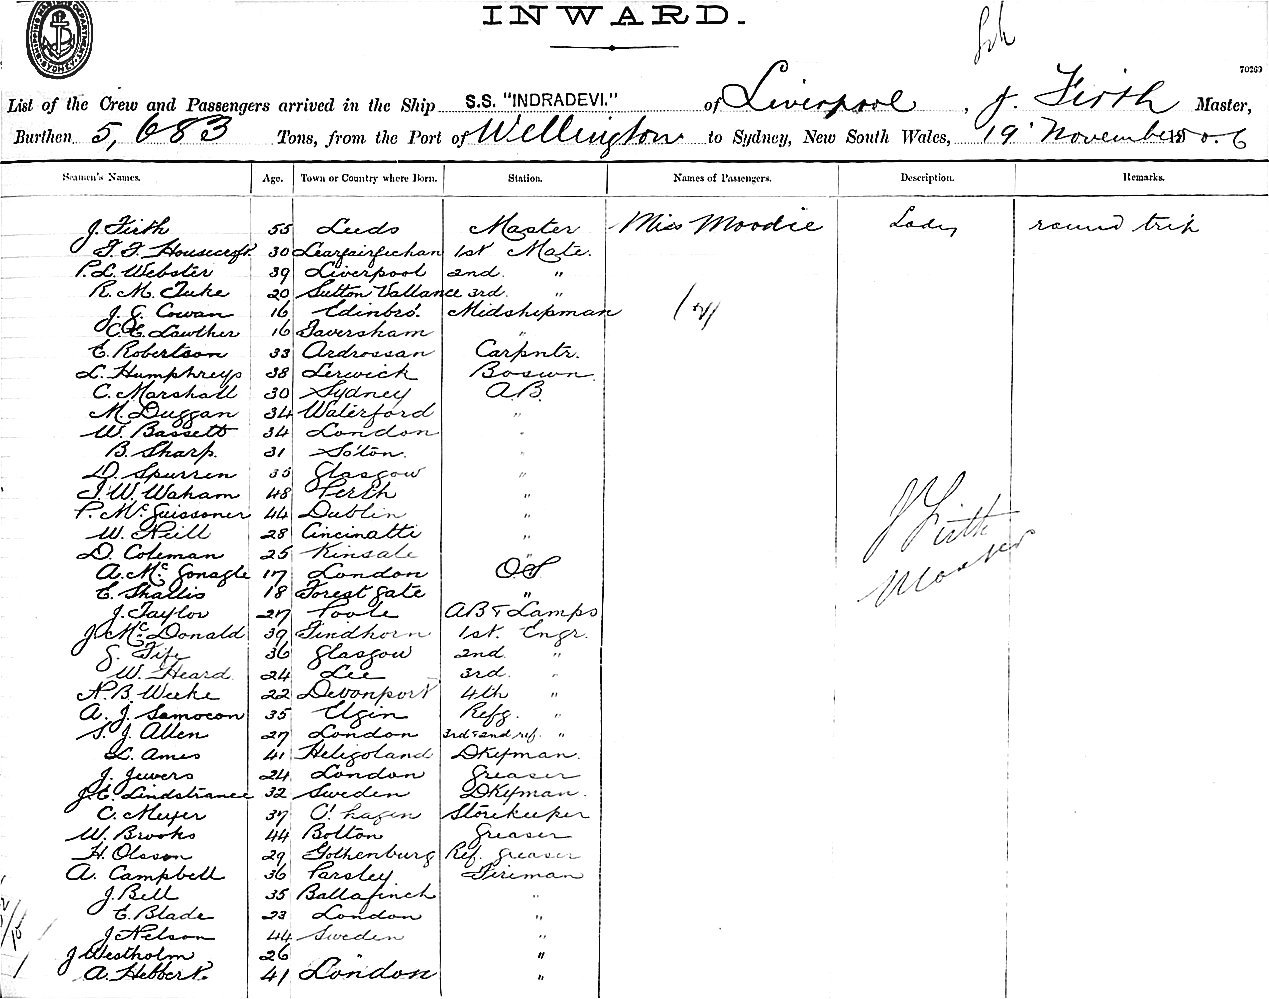 INWARD.
70269
List of the Crew and Passengers arrived in the Ship S.S. "INDRADEVI." of Liverpool, J. Firth Master,
Burthen 5,683 Tons, from the Port of Wellington to Sydney, New South Wales, 19 November 1906
Seamen's Names. Age. Town or Country where Born. Station. Names of Passengers. Description. Remarks.
J. Firth 55 Leeds Master Miss Moodie Lady round trip
F. F. Housecroft 30 Learfairfechan 1st Mate.
P. L. Webster 39 Liverpool 2nd. "
R. M. Tuke 20 Sutton Vallance 3rd. "
J. G. Cowan 16 Edinbro'. Midshipman
C. E. Lawther 16 Faversham "
E. Robertson 33 Ardrossan Carpntr.
L. Humphreys 38 Lerwick Boswn.
C. Marshall 30 Sydney A.B.
M. Duggan 34 Waterford "
W. Bassett 34 London "
B. Sharp. 31 So'ton. "
D. Spurren 35 Glasgow "
J. W. Waham 48 Perth "
P. Mc Guissoner 44 Dublin "
W. Neill 28 Cincinatti "
D. Coleman 25 Kinsale "
A. Mc Gonagle 17 London OS
E. Shallis 18 Forest gate "
J. Taylor 27 Poole AB & Lamps
J. Mc Donald 39 Findhorn 1st. Engr.
G. Fife 36 Glasgow 2nd "
W. Heard. 24 Lee 3rd. "
N. B. Weeke 22 Devonport 4th "
A. J. Samocon 35 Elgin Refg. "
S. J. Allen 27 London 3rd & 2nd ref. "
L. Ames 41 Heligoland Dkyman.
J. Jewers 24 London Greaser
J. E. Lindstrance 32 Sweden Dkyman.
C. Meyer 37 C'hagen Storekeeper
W. Brooks 44 Bolton Greaser
H. Olsson 29 Gothenburg Ref. greaser
A. Campbell 36 Parsley Fireman
J. Bell 35 Ballafinch "
E. Blade 23 London "
J. Nelson 44 Sweden "
J Westholm 26 " "
A. Hebbert. 41 London "
J Firth
Master